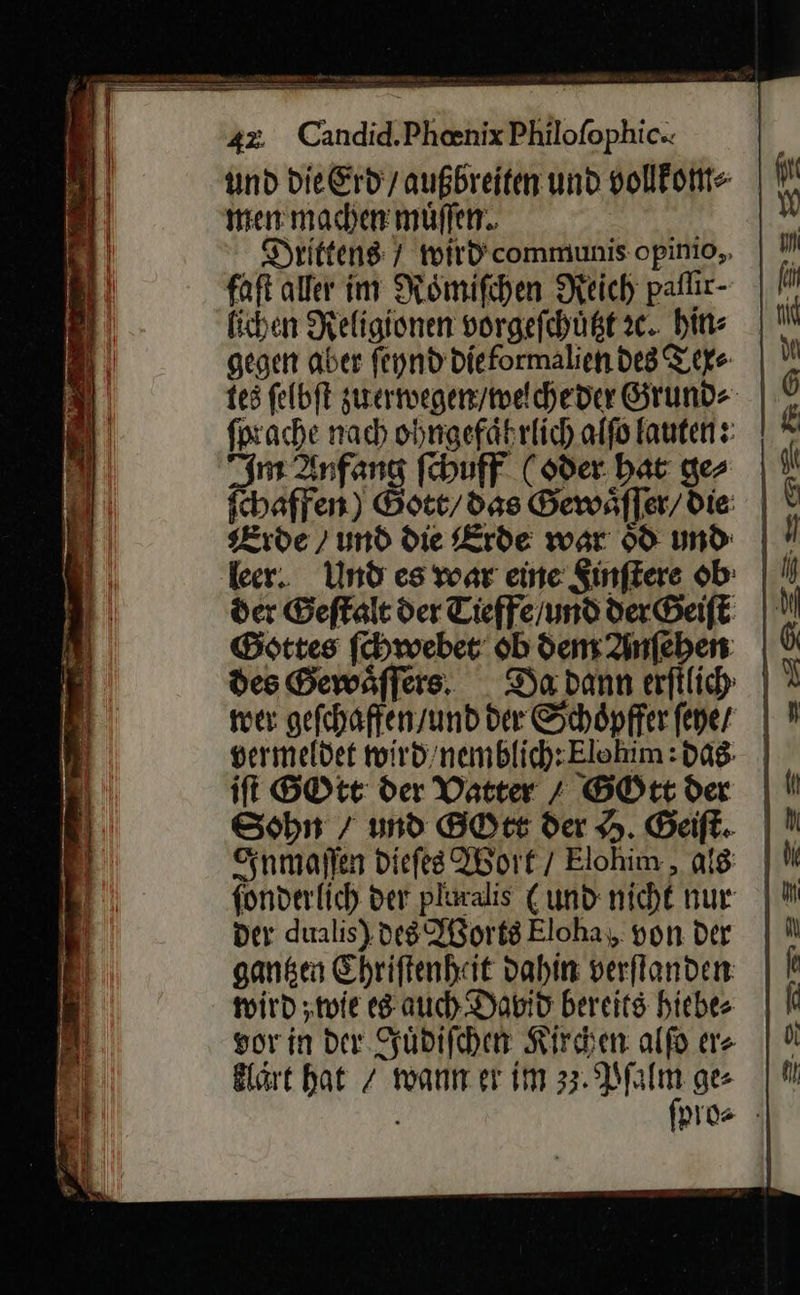 42 Candid. Phœnix Philoſophic.
und die Erd / außbreiten und vollkom⸗
men machen muͤſſen.
Drittens / wird communis opinio,
faſt aller im Roͤmiſchen Reich paſſir-
lichen Religionen vorgeſchuͤtzt ꝛc. hin⸗
gegen aber ſeynd die formalien des Tex⸗
tes ſelbſt zu erwegen / welche der Grund⸗
ſprache nach ohngefaͤhrlich alſo lauten:
Im Anfang ſchuff (oder hat ge⸗
ſchaffen) Gott / das Gewaͤſſer / die
Erde / und die Erde war oͤd und
leer. Und es war eine Finſtere ob
der Geſtalt der Tieffe / und der Geiſt
Gottes ſchwebet ob dem Anſehen
des Gewaͤſſers. Da dann erſtlich
wer geſchaffen / und der Schoͤpffer ſeye /
vermeldet wird / nemblich: Elohim: das
iſt GOtt der Vatter / GOtt der
Sohn / und GOtt der H. Geiſt.
Inmaſſen dieſes Wort / Elohim, als
ſonderlich der pluralis (und nicht nur
der dualis) des Worts Eloha, von der
gantzen Chriſtenheit dahin verſtanden
wird; wie es auch David bereits hiebe⸗
vor in der Juͤdiſchen Kirchen alſo er⸗
klaͤrt hat / wann er im 33. Pſalm ge⸗
ſpro⸗